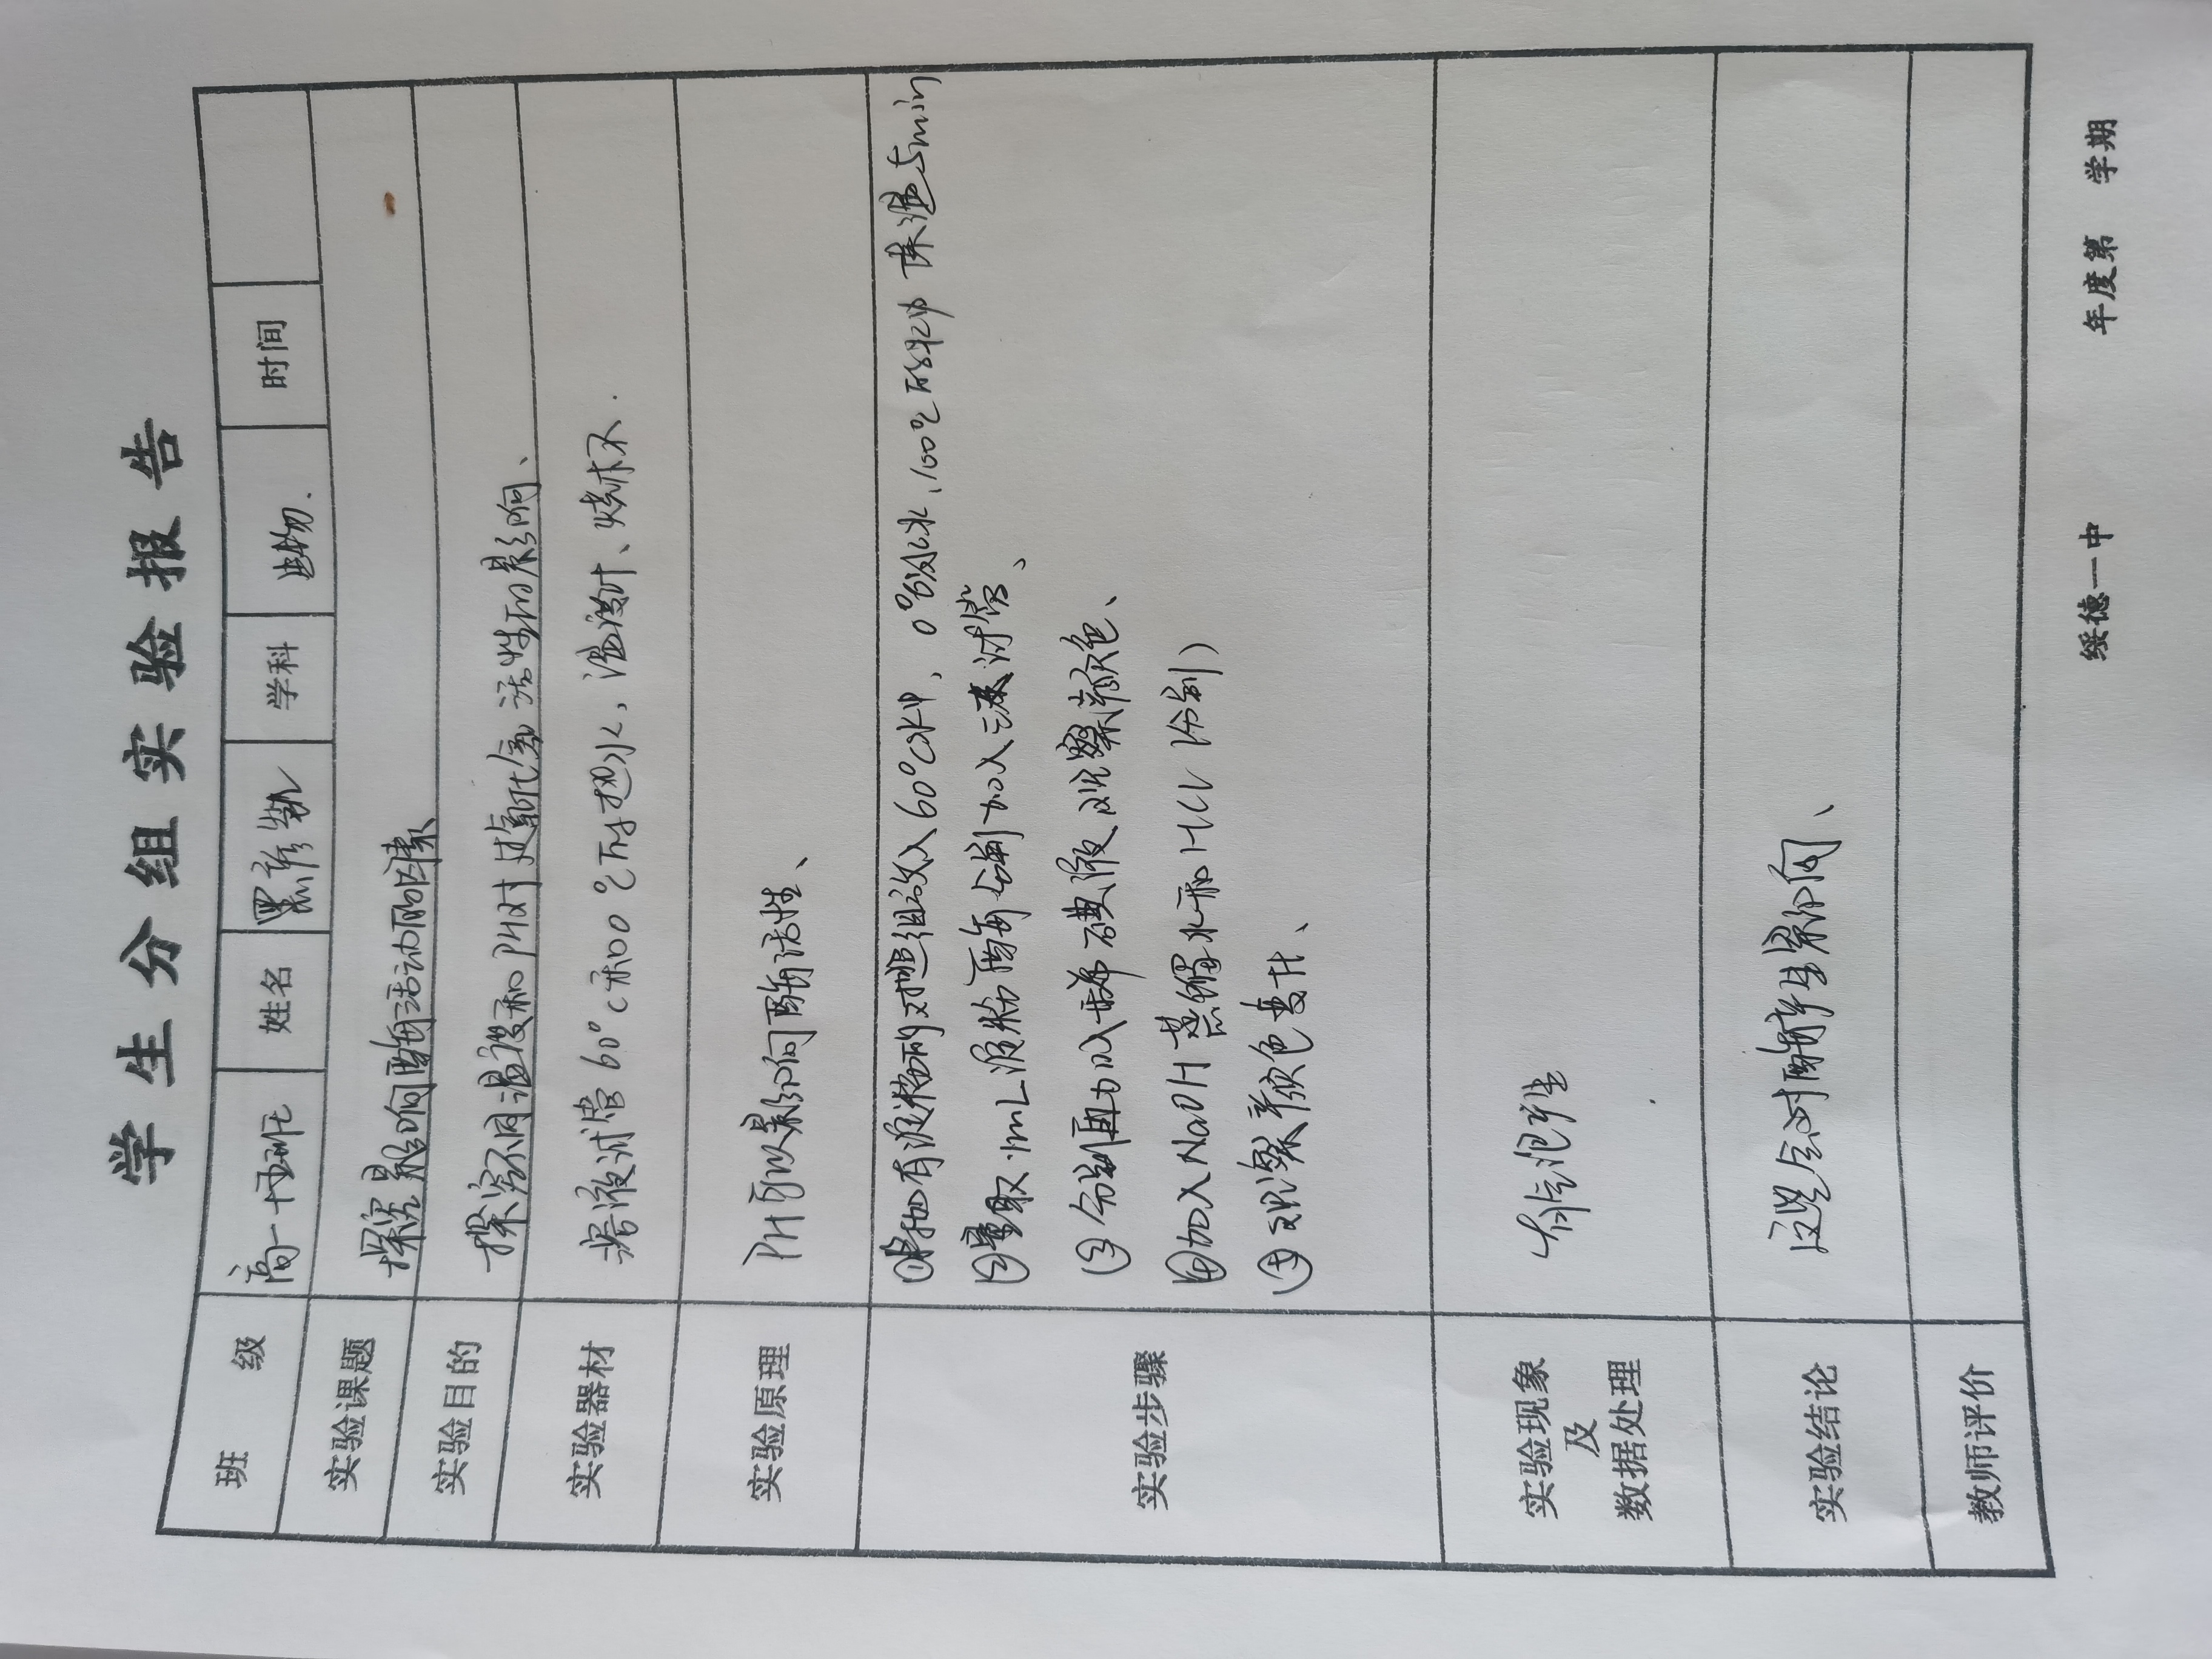 学生分组实验报告
班级 高一十四班 姓名 学科 生物. 时间
实验课题 探究影响酶活动的因素
实验目的 探究不同温度和PH对过氧化氢活性的影响、
实验器材 碘液试管60°C和100℃的热水,温度计、烧杯.
实验原理 PH可以影响酶活性、
实验步骤
有淀粉的对照组放入60°C水中, 0°的冰水,100℃的水中保温5min
②量取1mL淀粉酶分别加入三支试管、
③分别再加入1滴碘液观察颜色、
④加入NaOH蒸馏水和HCl(分别)
⑤观察颜色变化、
实验现象
及
数据处理
有气泡产生
实验结论 这些会对酶产生影响、
教师评价
绥德一中 年度第 学期